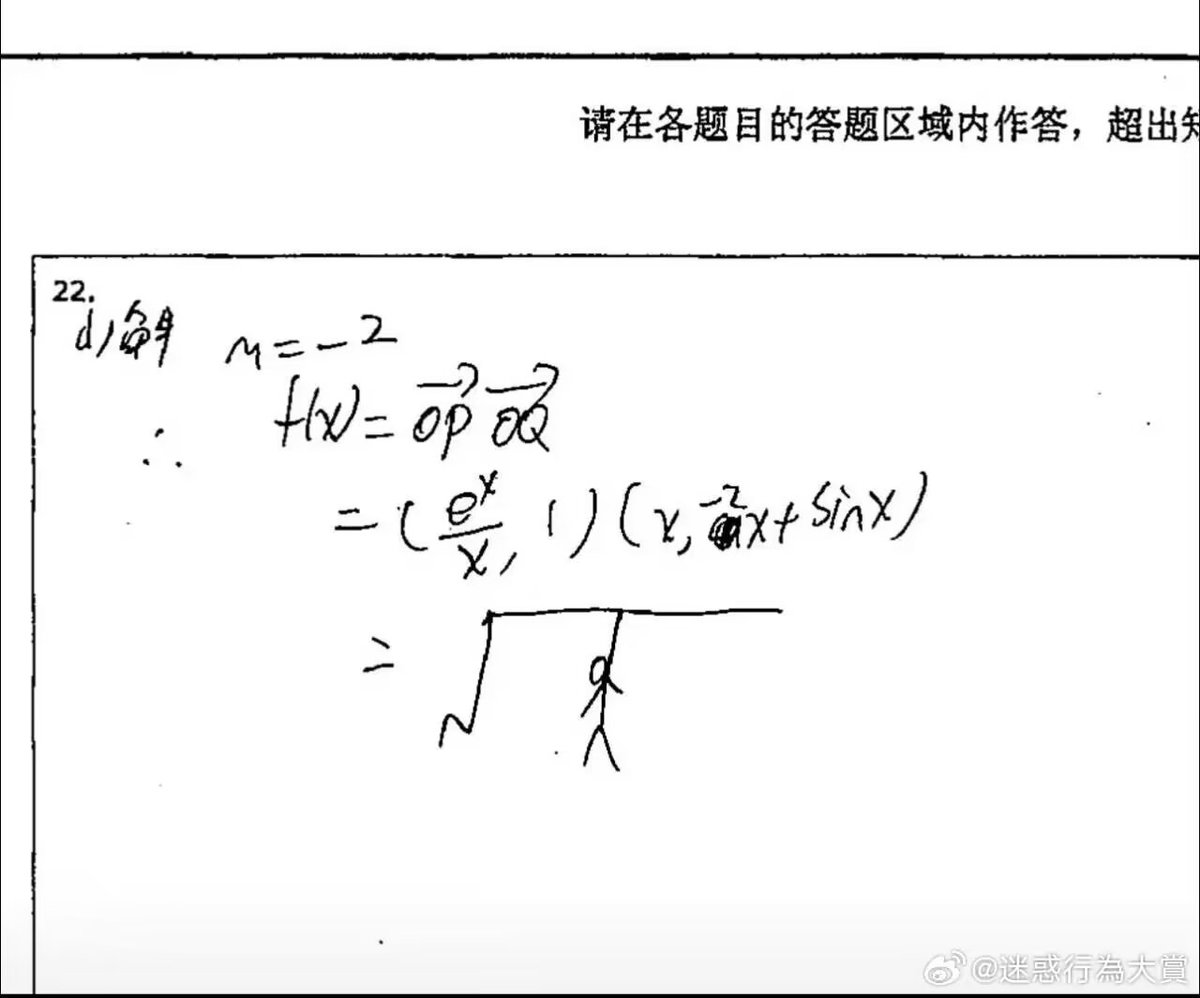 请在各题目的答题区域内作答，超出
22.
(1)解 m=-2
∴ f(x)=OP→ OQ→
=(e^x/x, 1)(x, -2x+sinx)
=√
@迷惑行為大賞